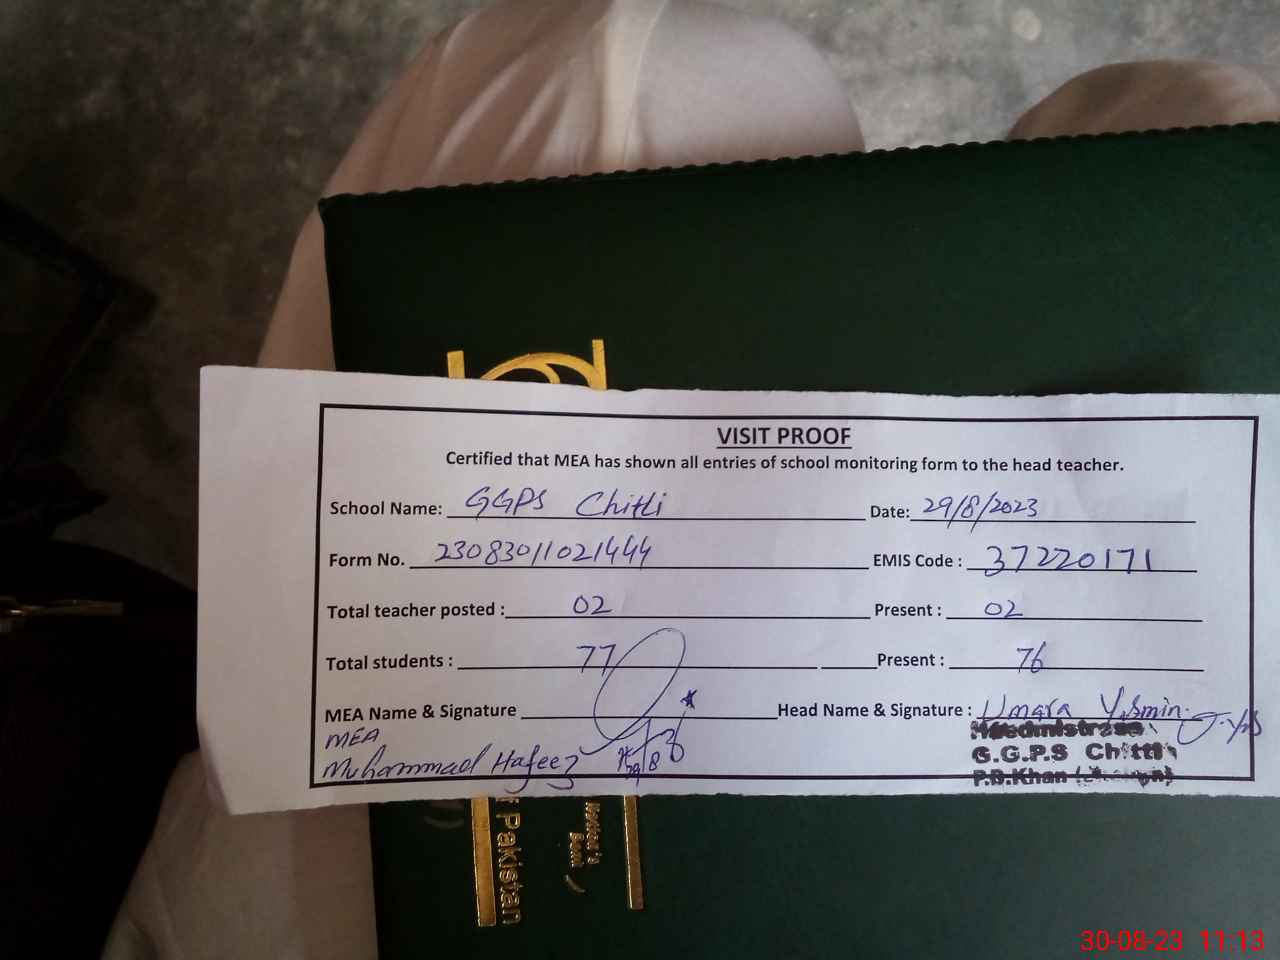 VISIT PROOF
Certified that MEA has shown all entries of school monitoring form to the head teacher.
School Name: GGPS Chitti Date: 29/8/2023
Form No. 23083011021444 EMIS Code : 37220171
Total teacher posted : 02 Present : 02
Total students : 77 Present : 76
MEA Name & Signature Head Name & Signature : Umara Yasmin
MEA
Muhammad Hafeez 29/8
Headmistress
G.G.P.S Chitti
P.D.Khan
Pakistan
30-08-23 11:13